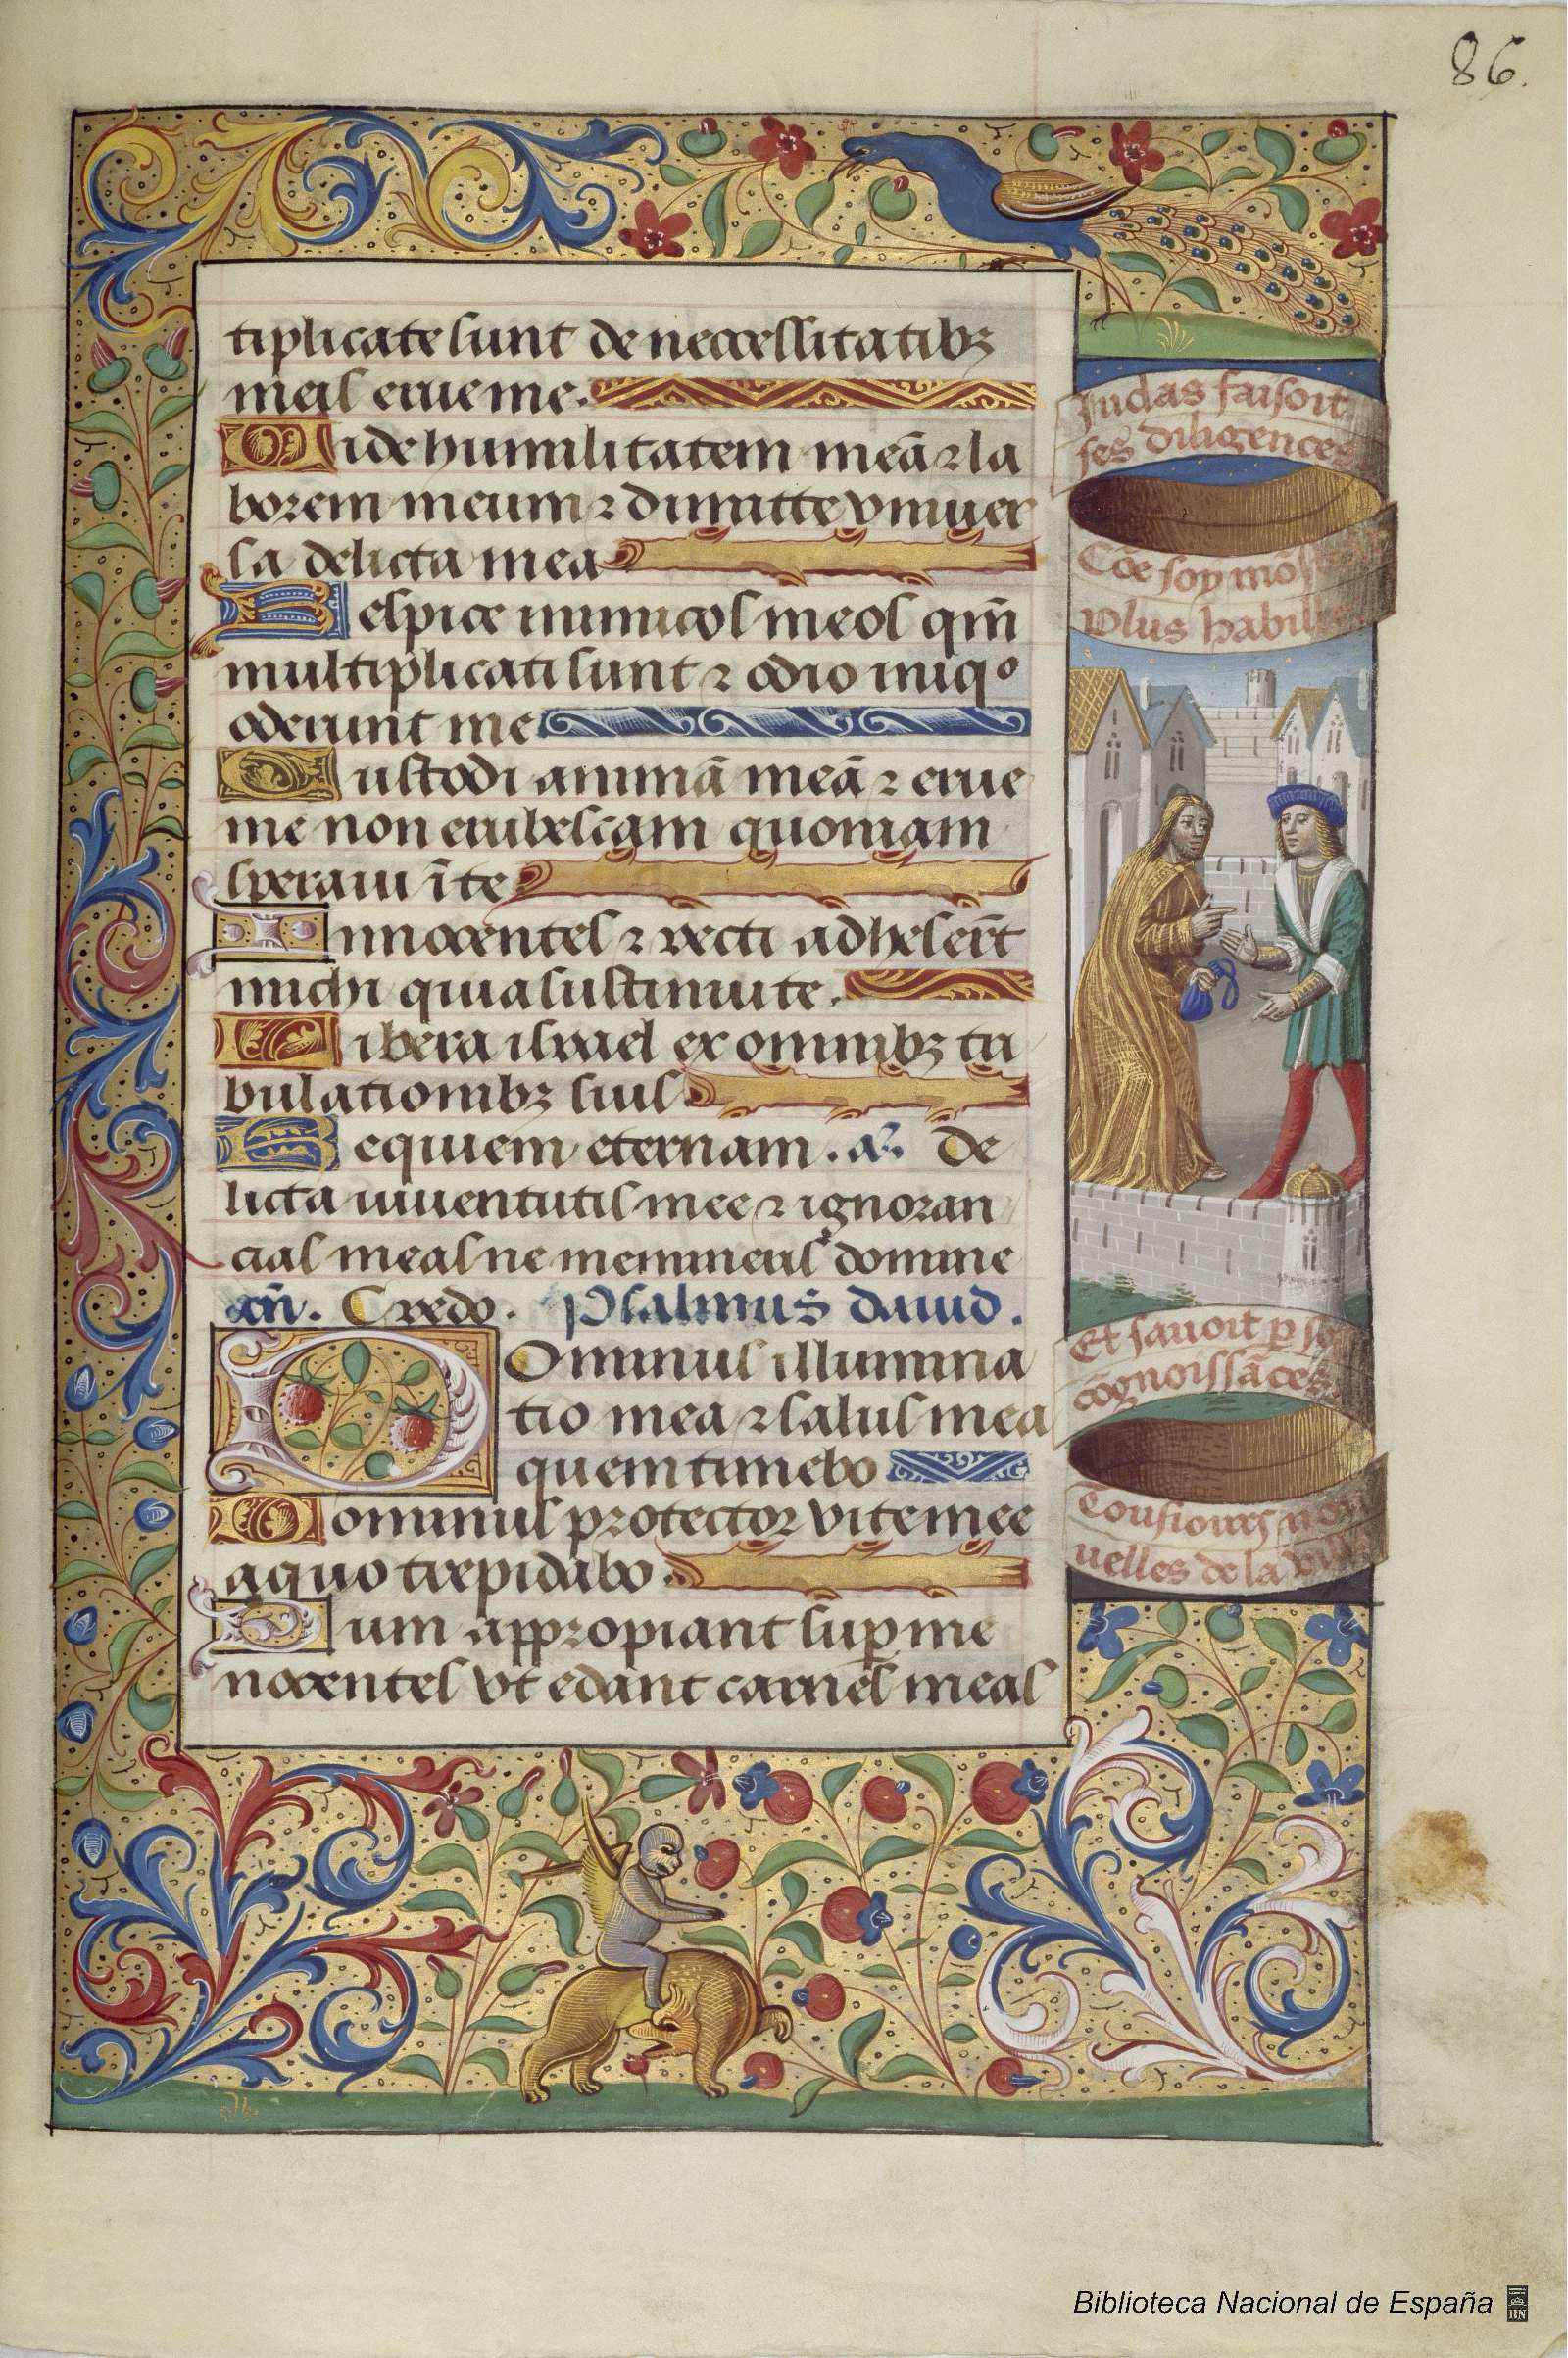 86.
tiplicate sunt de necessitatibꝫ
meis erue me.
Vide humilitatem meā ⁊ la
borem meum ⁊ dimitte vniuer
sa delicta mea
Respice inimicos meos qm̄
multiplicati sunt ⁊ odio iniqº
oderunt me
Custodi animā meā ⁊ erue
me non erubescam quoniam
speraui ī te
Innocentes ⁊ recti adheserūt
michi quia sustinui te.
Libera israel ex omnibꝫ tri
bulationibꝫ suis
Requiem eternam. a͞. De
licta iuuentutis mee ⁊ ignoran
cias meas ne memineris domine
añ. Credo. Psalmus dauid.
Dominus illumina
tio mea ⁊ salus mea
quem timebo
Dominus protector vite mee
a quo trepidabo.
Dum appropiant suꝑ me
nocentes vt edant carnes meas
Judas faisoit
ses diligences
Cōe soy mō
Plus habill
Et sauoit ꝑ
cōgnoissāces
Tousiours nou
uelles de la
Biblioteca Nacional de España
BN